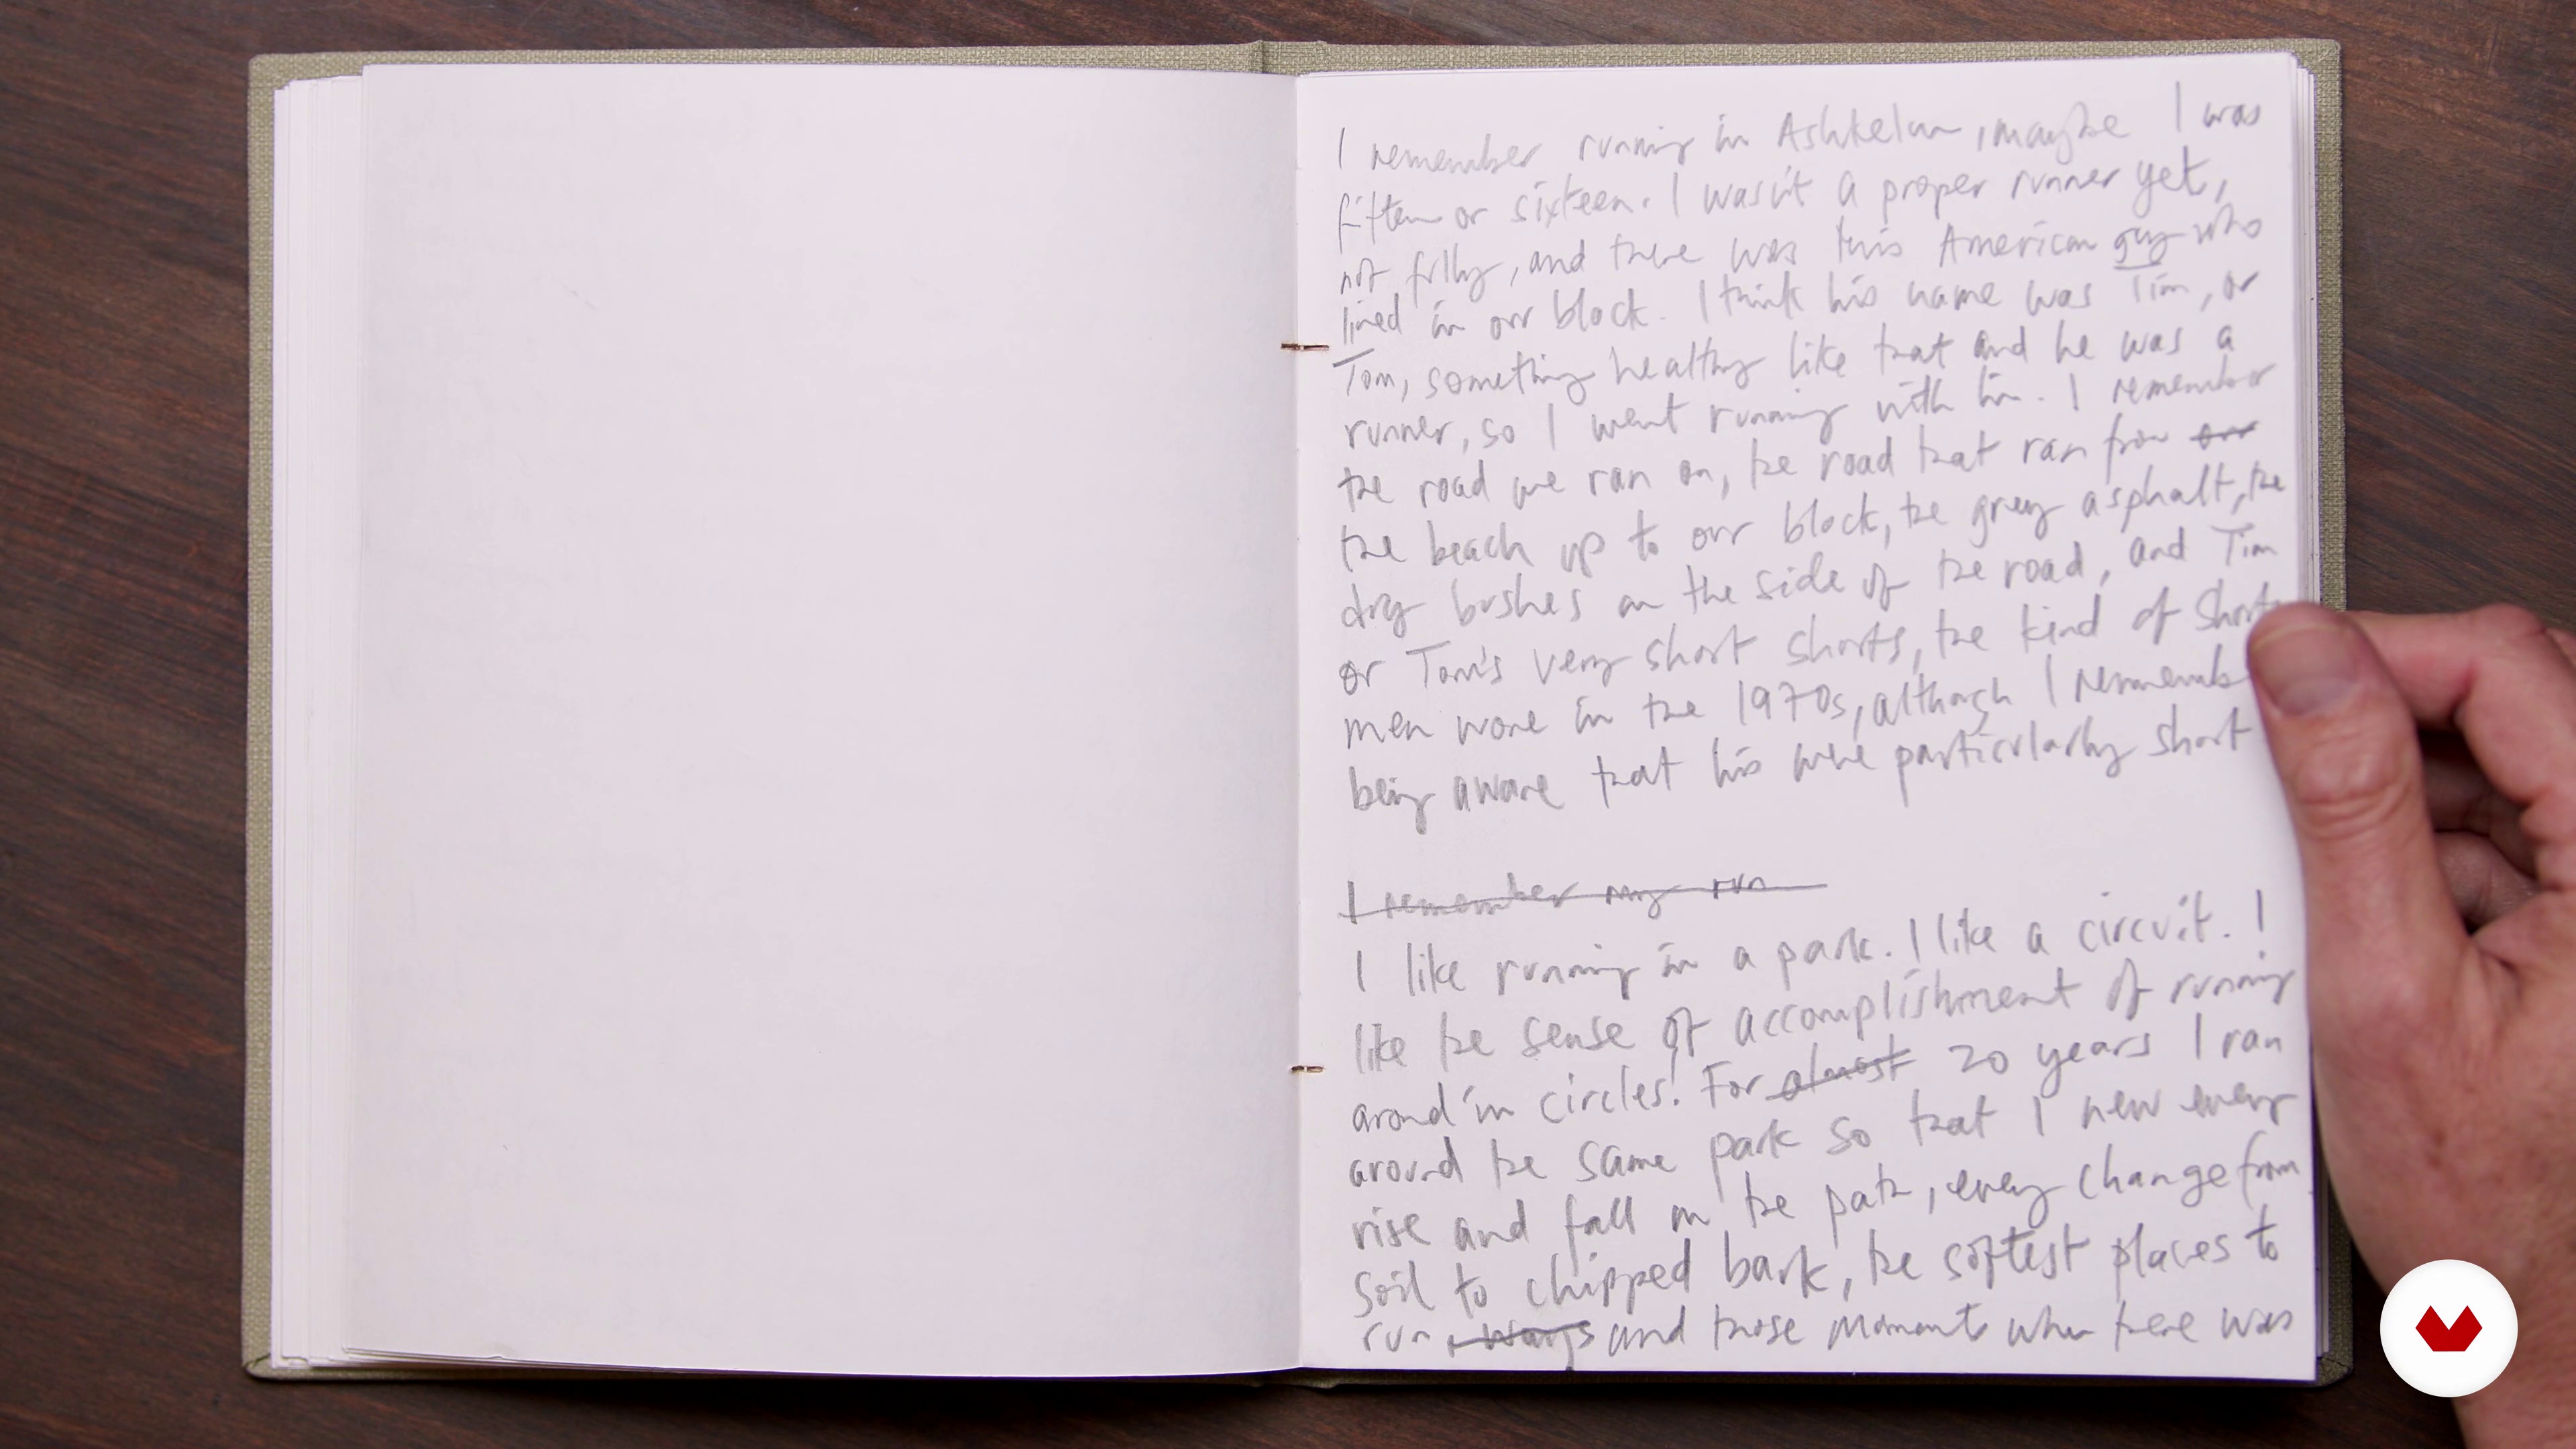 I remember running in Ashkelon, maybe I was
fifteen or sixteen. I wasn't a proper runner yet,
not fully, and there was this American guy who
lived in our block. I think his name was Tim, or
Tom, something healthy like that and he was a
runner, so I went running with him. I remember
the road we ran on, the road that ran from our
the beach up to our block, the grey asphalt, the
dry bushes on the side of the road, and Tim
or Tom's very short shorts, the kind of shorts
men wore in the 1970s, although I remember
being aware that his were particularly short
I remember my run
I like running in a park. I like a circuit. I
like the sense of accomplishment of running
around in circles! For almost 20 years I ran
around the same park so that I new every
rise and fall in the path, every change from
soil to chipped bark, the softest places to
run, ways and those moments when there was